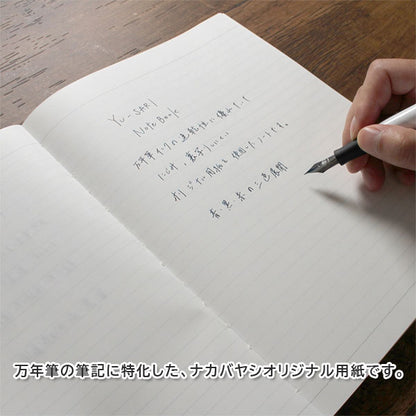 YU-SARI
Note Book
万年筆インクの
にじみ、裏写りしにくい
オリジナル用紙を使用したノートです。
青・黒・赤の三色展開
万年筆の筆記に特化した、ナカバヤシオリジナル用紙です。